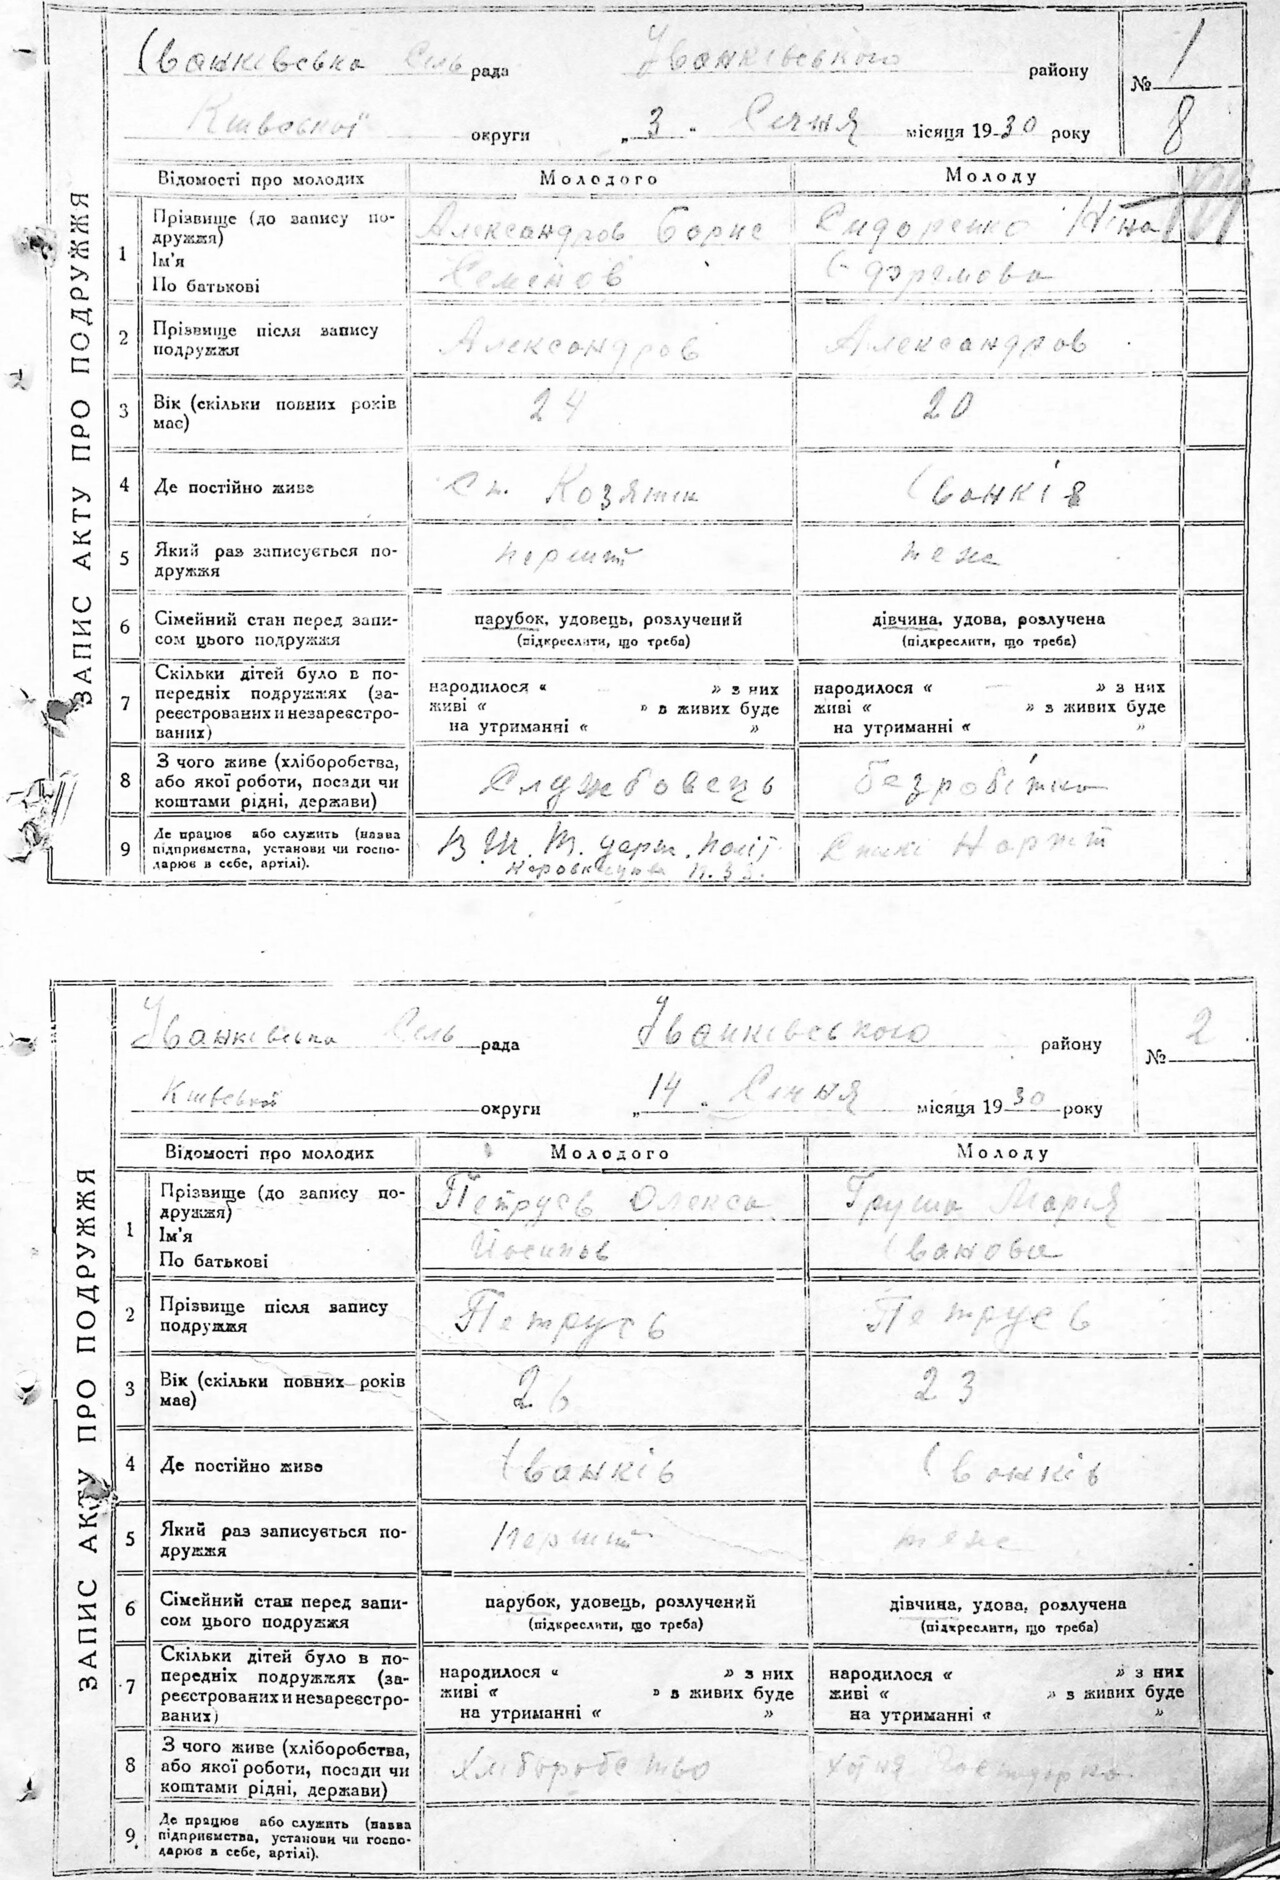 ЗАПИС АКТУ ПРО ПОДРУЖЖЯ
Іванківська Сіль рада Іванківського району № 1
8
Київської округи „3" Січня місяця 1930 року
Відомості про молодих Молодого Молоду
1 Прізвище (до запису по-
дружжя)
Ім'я
По батькові
Александров Борис
Семенов
Сидоренко Ніна
Єфремова
2 Прізвище після запису
подружжя
Александров Александров
3 Вік (скільки повних років
має)
24 20
4 Де постійно живе Ст. Козятин Іванків
5 Який раз записується по-
дружжя
перший теж
6 Сімейний стан перед запи-
сом цього подружжя
парубок, удовець, розлучений
(підкреслити, що треба)
дівчина, удова, розлучена
(підкреслити, що треба)
7 Скільки дітей було в по-
передніх подружжях (за-
реєстрованих и незареєстро-
ваних)
народилося « » з них
живі « » в живих буде
на утриманні « »
народилося « » з них
живі « » з живих буде
на утриманні « »
8 З чого живе (хліборобства,
або якої роботи, посади чи
коштами рідні, держави)
Службовець безробітна
9 Де працює або служить (назва
підприємства, установи чи госпо-
дарює в себе, артілі).
держ. політ
ЗАПИС АКТУ ПРО ПОДРУЖЖЯ
Іванківська Сіль рада Іванківського району № 2
Київської округи „14" Січня місяця 1930 року
Відомості про молодих Молодого Молоду
1 Прізвище (до запису по-
дружжя)
Ім'я
По батькові
Петрусь Олекса
Йосипов
Груша Марія
Іванова
2 Прізвище після запису
подружжя
Петрусь Петрусь
3 Вік (скільки повних років
має)
26 23
4 Де постійно живе Іванків Іванків
5 Який раз записується по-
дружжя
перший теж
6 Сімейний стан перед запи-
сом цього подружжя
парубок, удовець, розлучений
(підкреслити, що треба)
дівчина, удова, розлучена
(підкреслити, що треба)
7 Скільки дітей було в по-
передніх подружжях (за-
реєстрованих и незареєстро-
ваних)
народилося « » з них
живі « » в живих буде
на утриманні « »
народилося « » з них
живі « » з живих буде
на утриманні « »
8 З чого живе (хліборобства,
або якої роботи, посади чи
коштами рідні, держави)
Хліборобство
9 Де працює або служить (назва
підприємства, установи чи госпо-
дарює в себе, артілі).